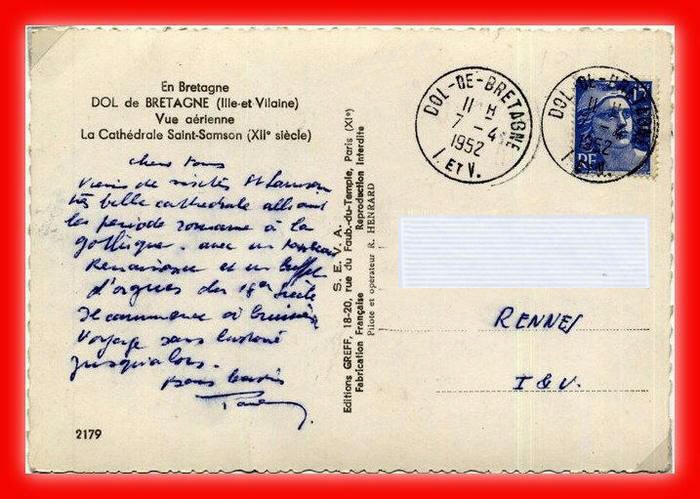 En Bretagne
DOL de BRETAGNE (Ille-et-Vilaine)
Vue aérienne
La Cathédrale Saint-Samson (XIIe siècle)
chers tous
Viens de visiter St Samson
très belle cathédrale alliant
les période romane à la
gothique. avec un
Renaissance et un buffet
d'orgues du siècle
Je commence à
Voyage sans
jusqu'alors.
Bons baisers
2179
S. E. V. A.
Editions GREFF, 18-20, rue du Faub.-du-Temple, Paris (XIe)
Fabrication Française Reproduction Interdite
Pilote et opérateur R. HENRARD
DOL-DE-BRETAGNE
11 H
7-4
1952
I. ET V.
DOL-DE-BRETAGNE
11 H
1952
I. ET V.
15F
RF
RENNES
I & V.